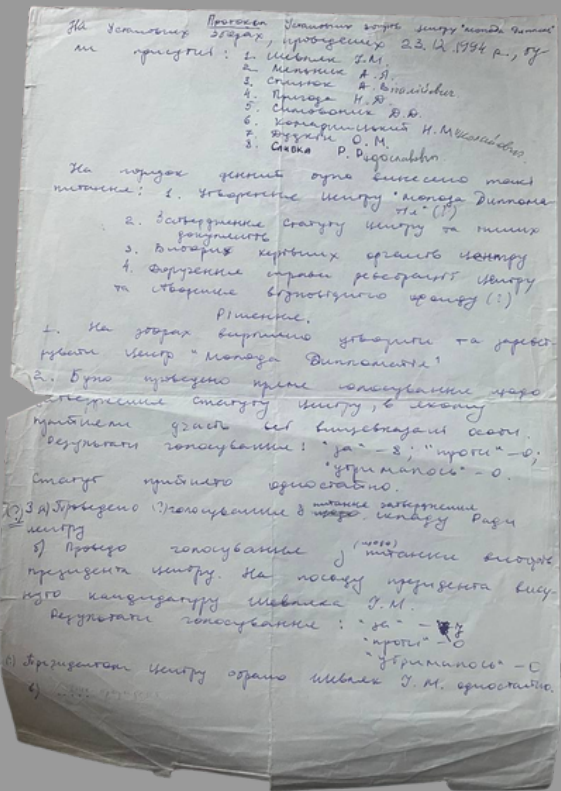 Протокол Установчих зборів центру "Молода Дипломатія"
На Установчих зборах, проведених 23.12.1994 р., бу-
ли присутні: 1. Шевляк І.М.
2. Мельник А.Я.
3. Спицюк А. Віталійович
4. Пригода Н.Д.
5. Д.Д.
6. Н. Миколайович
7. О.М.
8. Сливка Р. Радославович
На порядок денний було винесено такі
питання: 1. Утворення Центру "Молода Диплома-
тія" (!)
2. Затвердження Статуту Центру та інших
документів
3. Вибори керівних органів Центру
4. Доручення справи реєстрації Центру
та створення відповідного фонду (!)
Рішення.
1. На зборах вирішено утворити та зареєст-
рувати Центр "Молода Дипломатія"
2. Було проведено пряме голосування щодо
затвердження Статуту Центру, в якому
прийняли участь всі вищевказані особи.
Результати голосування: "за" – 8; "проти" – 0;
"утрималось" – 0.
Статут прийнято одностайно.
(?) 3 а) Проведено (?) голосування з питання затвердження
щодо складу Ради
центру
б) Проведо голосування з (щодо) питання виборів
президента Центру. На посаду президента вису-
нуто кандидатуру Шевляка І.М.
Результати голосування: "за" – 7
"проти" – 0
"утрималось" – 0
(!) Президентом Центру обрано Шевляк І.М. одностайно.
в)